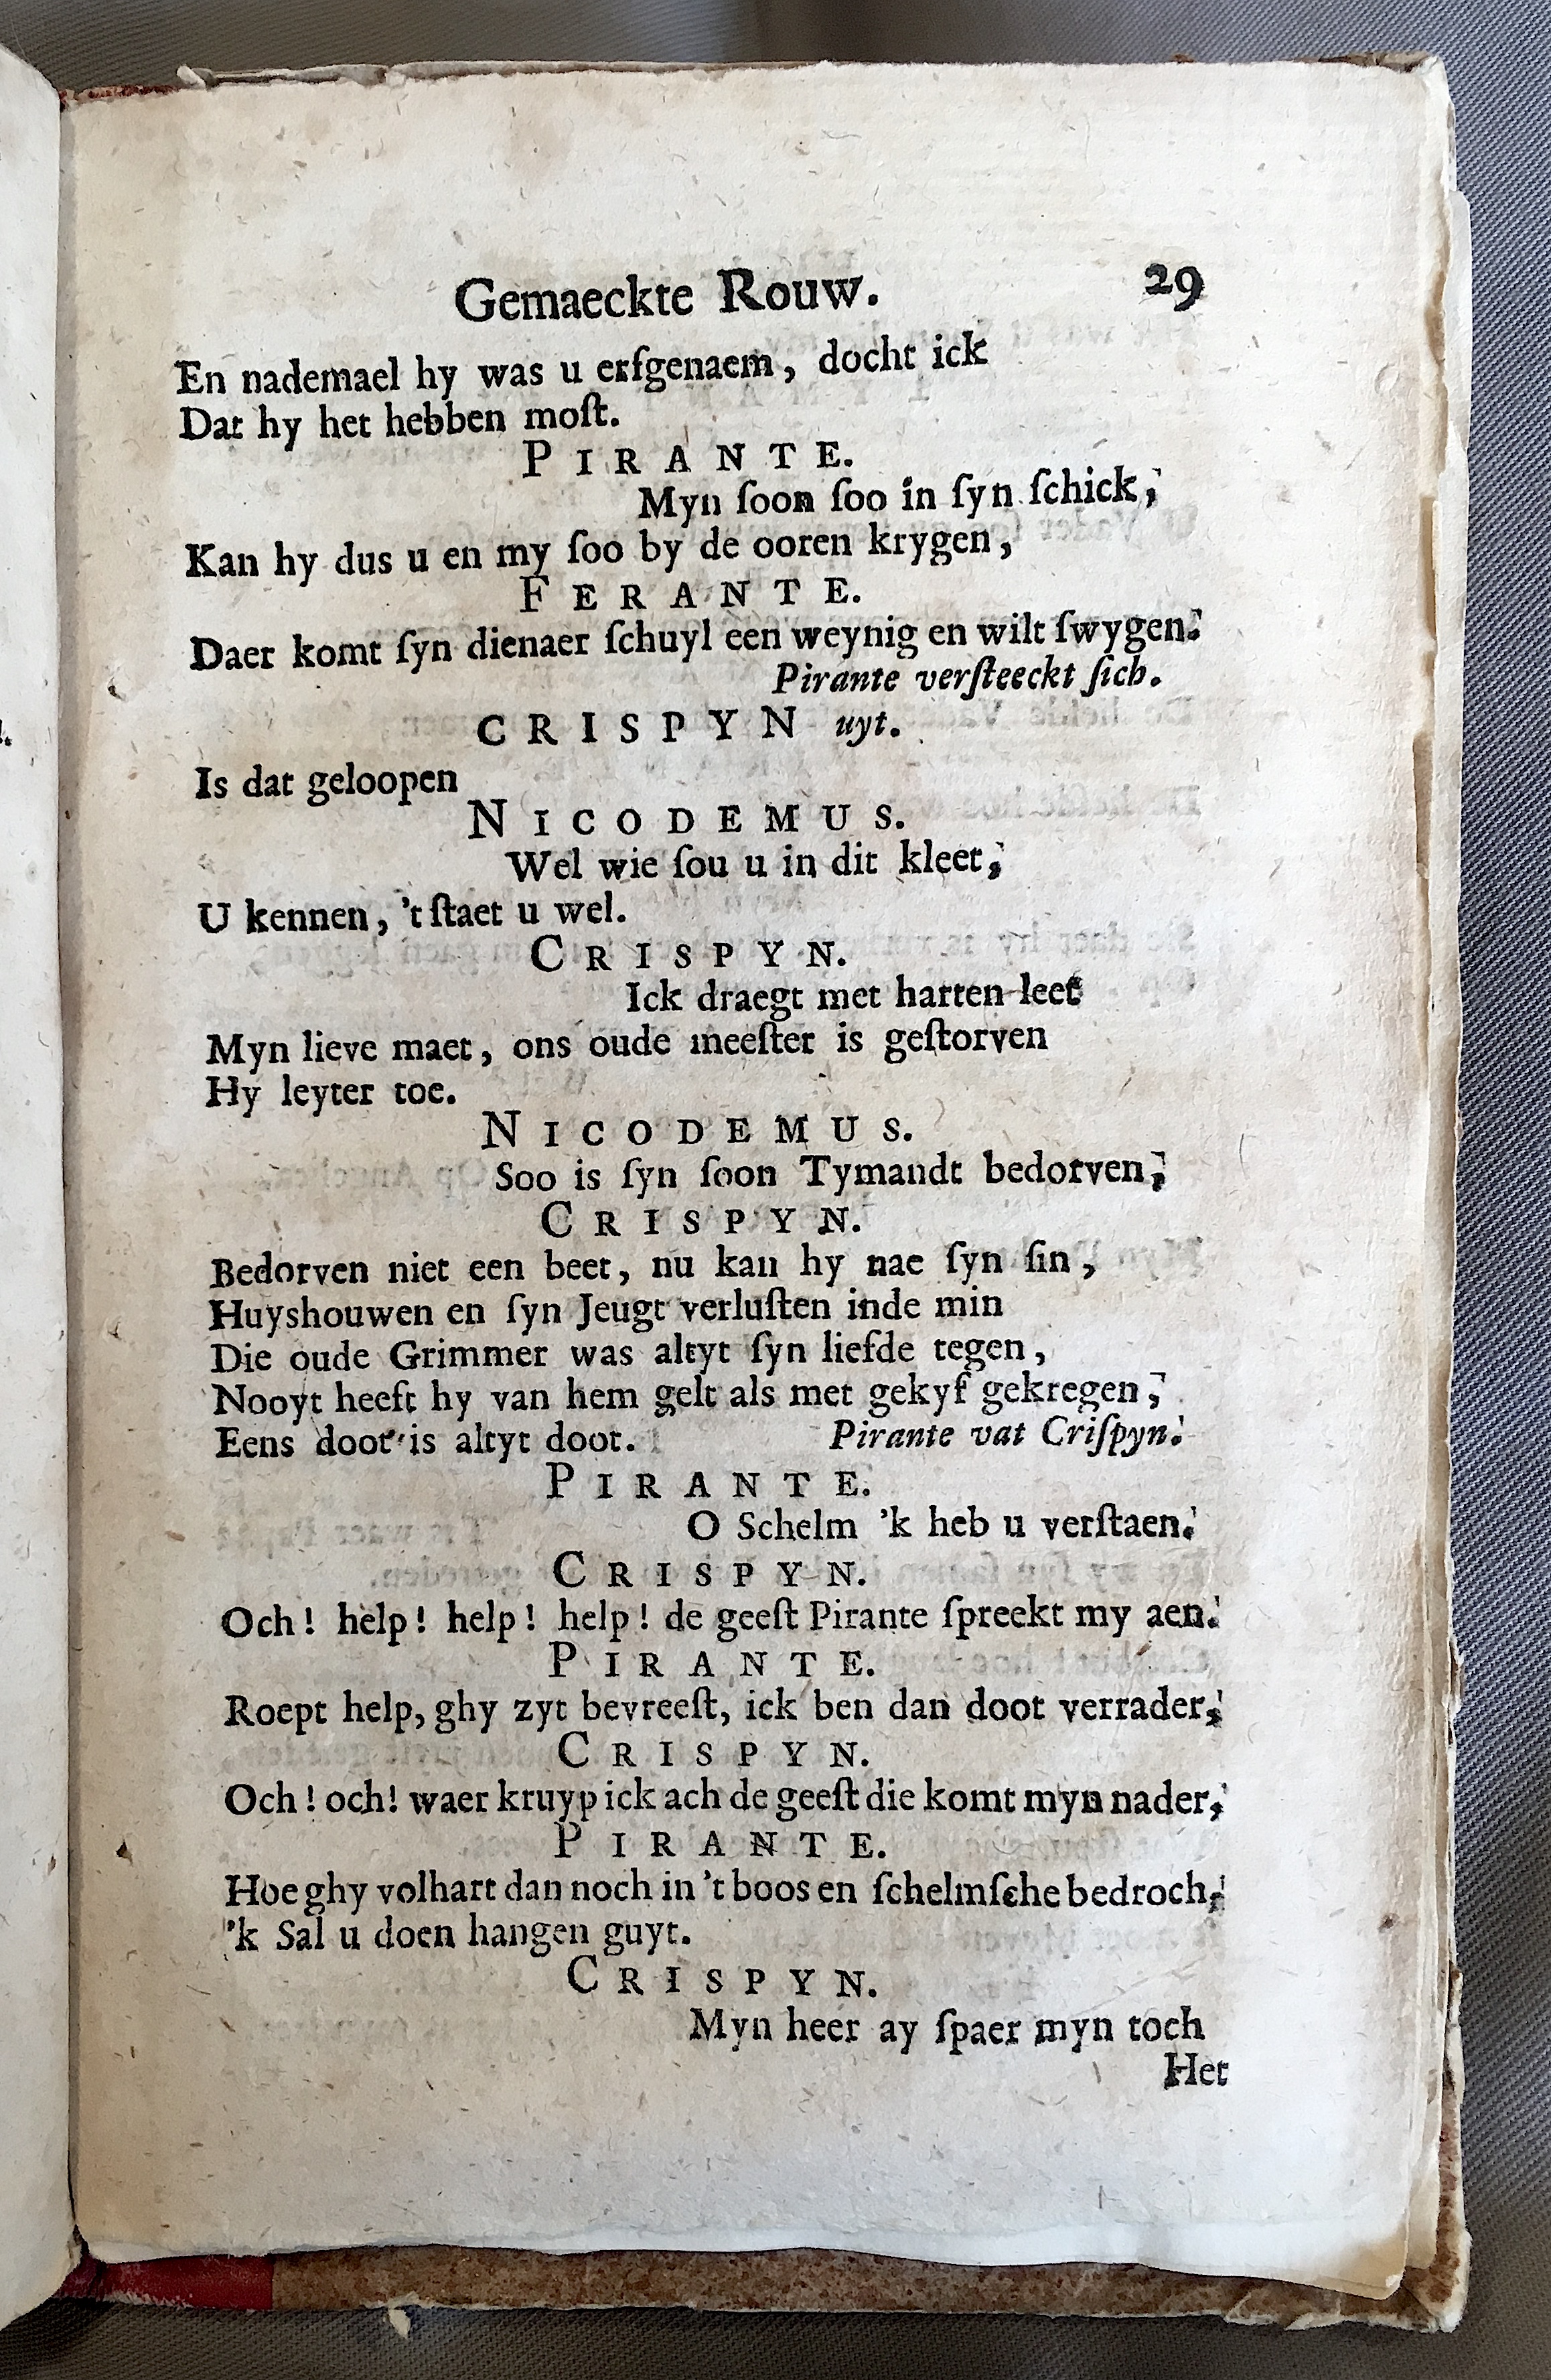 Gemaeckte Rouw. 29
En nademael hy was u erfgenaem, docht ick
Dat hy het hebben moſt.
PIRANTE.
Myn ſoon ſoo in ſyn ſchick;
Kan hy dus u en my ſoo by de ooren krygen,
FERANTE.
Daer komt ſyn dienaer ſchuyl een weynig en wilt ſwygen.
Pirante verſteeckt ſich.
CRISPYN uyt.
Is dat geloopen
NICODEMUS.
Wel wie ſou u in dit kleet;
U kennen, 't ſtaet u wel.
CRISPYN.
Ick draegt met harten leet
Myn lieve maet, ons oude meeſter is geſtorven
Hy leyter toe.
NICODEMUS.
Soo is ſyn ſoon Tymandt bedorven;
CRISPYN.
Bedorven niet een beet, nu kan hy nae ſyn ſin,
Huyshouwen en ſyn Jeugt verluſten inde min
Die oude Grimmer was altyt ſyn liefde tegen,
Nooyt heeft hy van hem gelt als met gekyf gekregen;
Eens doot is altyt doot. Pirante vat Criſpyn.
PIRANTE.
O Schelm 'k heb u verſtaen.
CRISPYN.
Och! help! help! help! de geeſt Pirante ſpreekt my aen.
PIRANTE.
Roept help, ghy zyt bevreeſt, ick ben dan doot verrader,
CRISPYN.
Och! och! waer kruyp ick ach de geeſt die komt myn nader,
PIRANTE.
Hoe ghy volhart dan noch in 't boos en ſchelmſche bedroch,
'k Sal u doen hangen guyt.
CRISPYN.
Myn heer ay ſpaer myn toch
Het